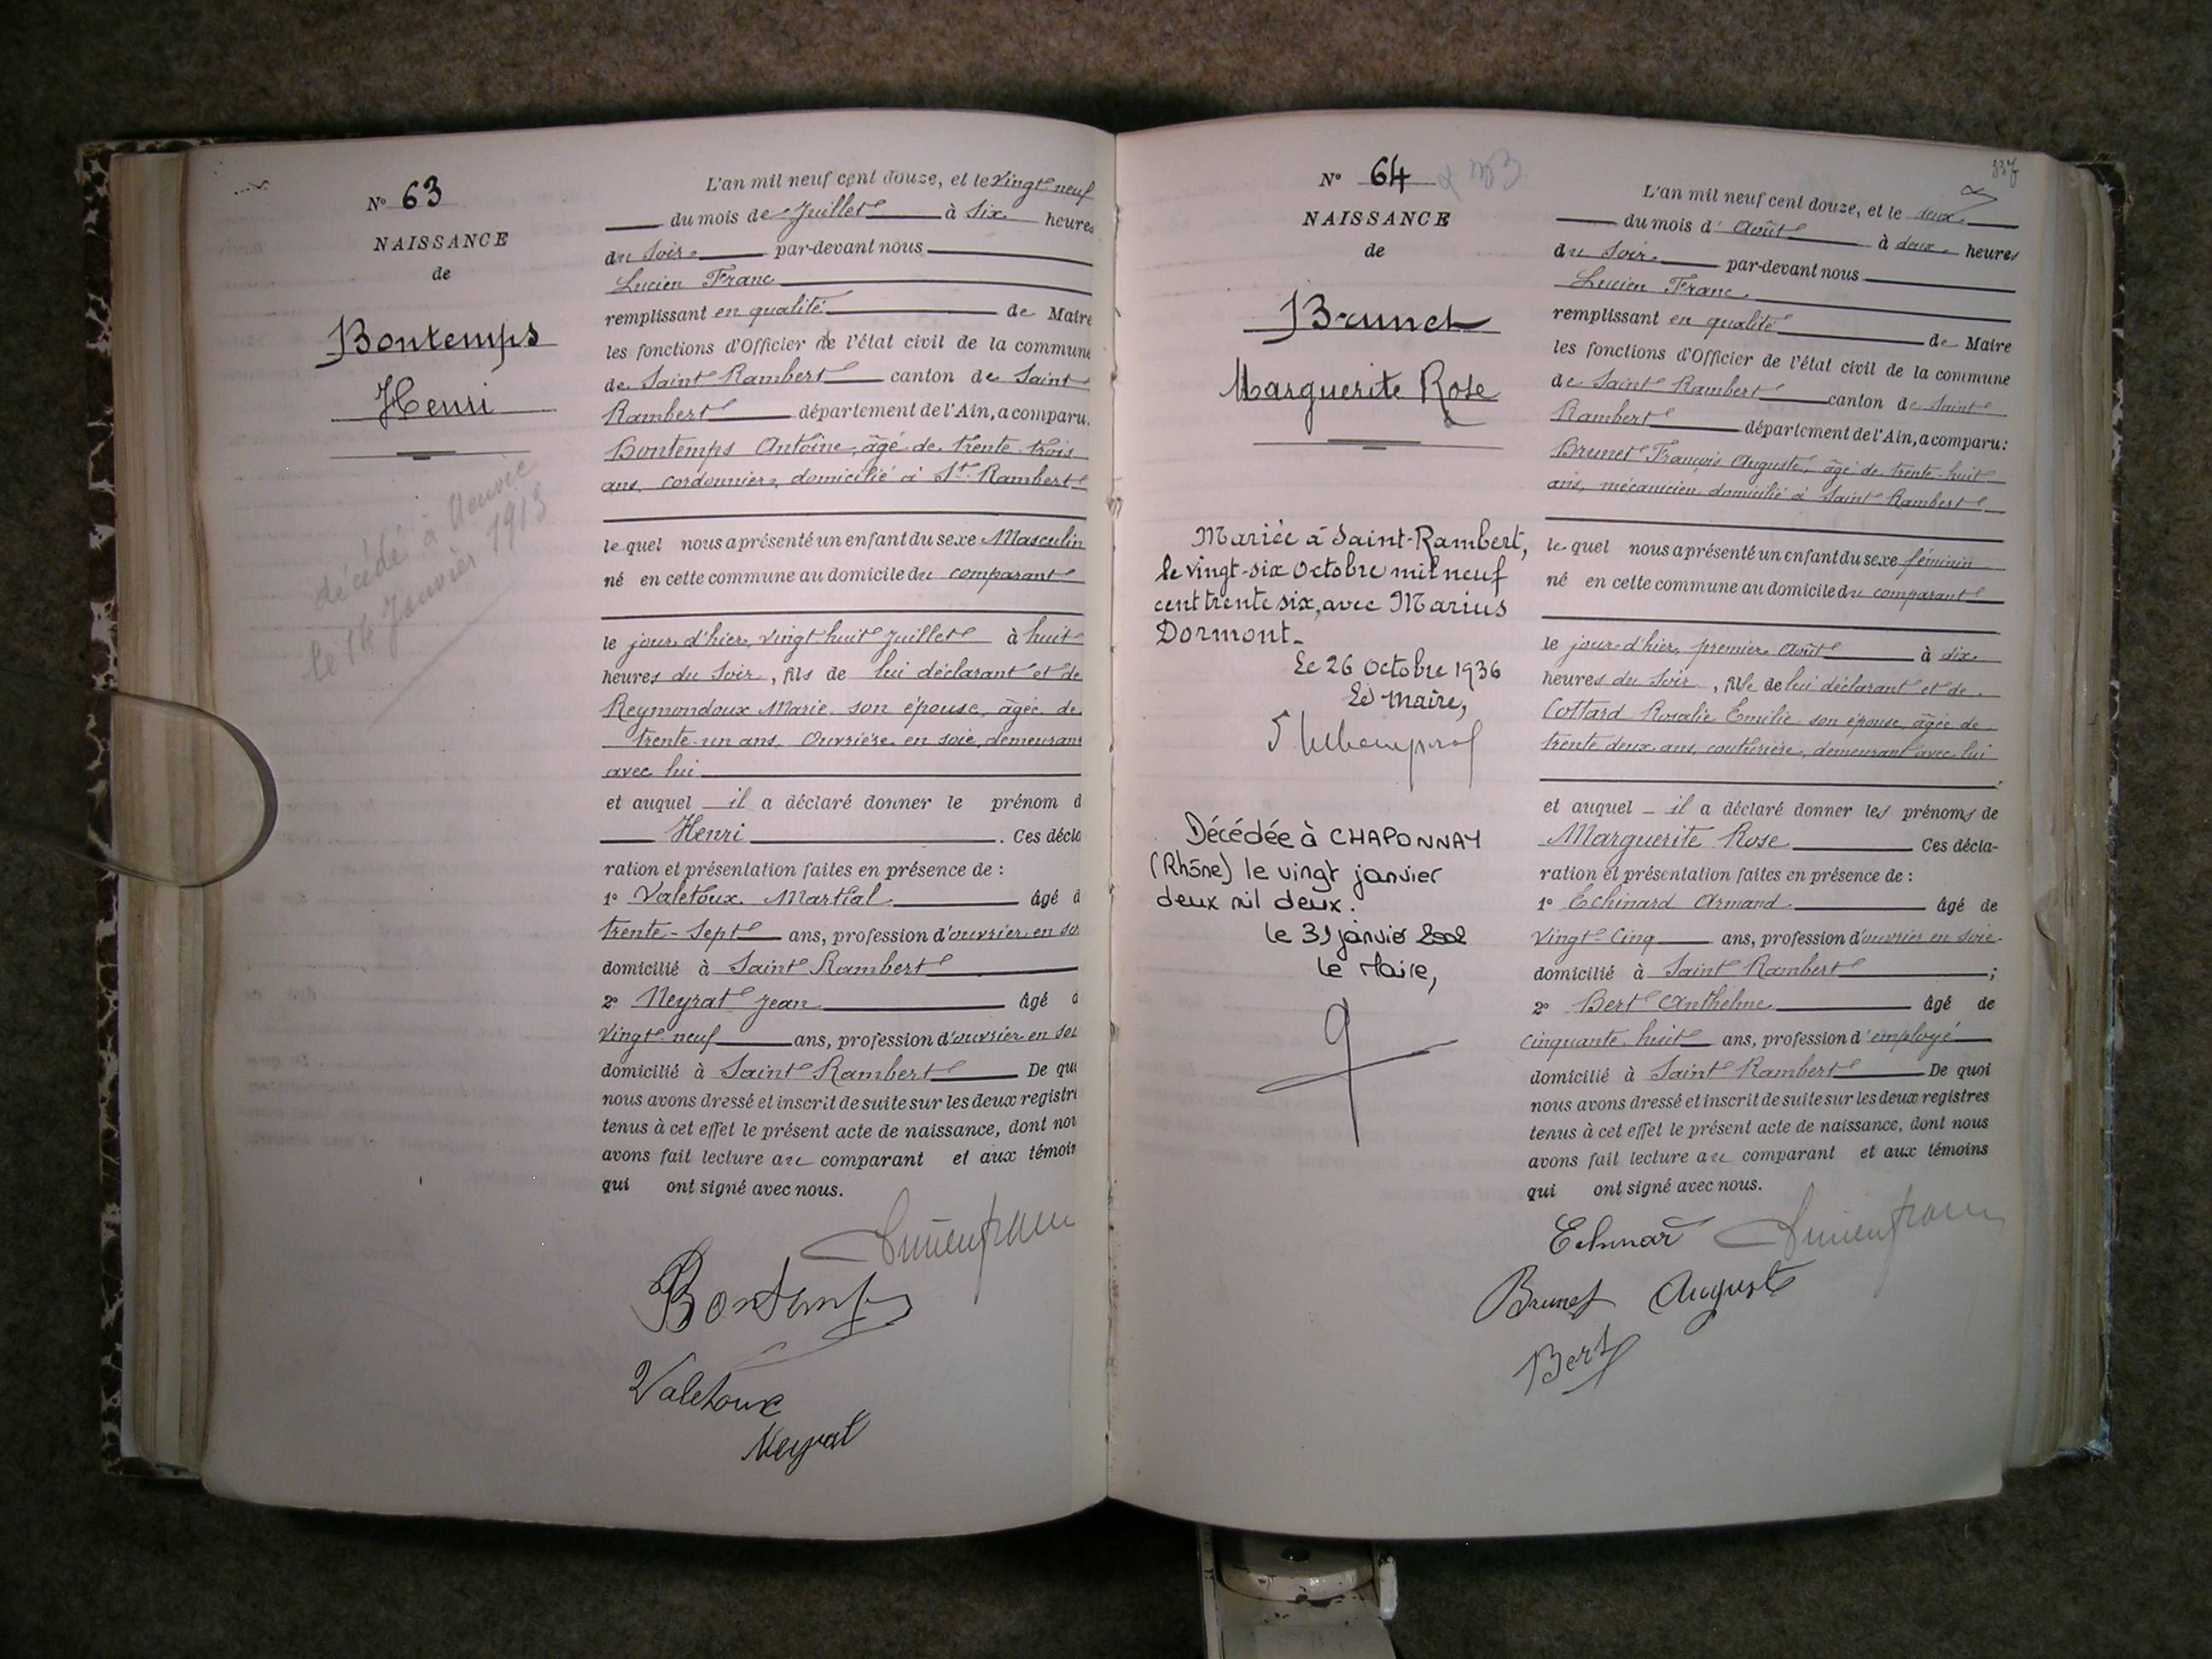 N° 63
NAISSANCE
de
Bontemps
Henri
décédé à
le 14 Janvier 1913
L'an mil neuf cent douze, et le Vingt-neuf
du mois de Juillet à Six heures
du Soir par-devant nous
Lucien Franc
remplissant en qualité de Maire
les fonctions d'Officier de l'état civil de la commune
de Saint Rambert canton de Saint
Rambert département de l'Ain, a comparu.
Bontemps Antoine, âgé de trente-trois
ans, cordonnier, domicilié à St. Rambert
lequel nous a présenté un enfant du sexe Masculin
né en cette commune au domicile du comparant
le jour d'hier, vingt huit Juillet à huit
heures du Soir, fils de lui déclarant et de
Reymondoux Marie son épouse, âgée de
trente-un ans, Ouvrière en soie, demeurant
avec lui
et auquel il a déclaré donner le prénom d
Henri. Ces décla
ration et présentation faites en présence de :
1° Valetoux Martial âgé d
trente-Sept ans, profession d'ouvrier en so
domicilié à Saint Rambert
2° Neyrat Jean âgé d
Vingt-neuf ans, profession d'ouvrier en soi
domicilié à Saint Rambert De quo
nous avons dressé et inscrit de suite sur les deux registre
tenus à cet effet le présent acte de naissance, dont nou
avons fait lecture au comparant et aux témoin
qui ont signé avec nous.
Lucien Franc
Bontemps
Valetoux
Neyrat
337
N° 64
NAISSANCE
de
Brunet
Marguerite Rose
Mariée à Saint-Rambert,
le vingt-six Octobre mil neuf
cent trente six, avec Marius
Dormont.
Le 26 Octobre 1936
Le Maire,
Décédée à CHAPONNAY
(Rhône) le vingt janvier
deux mil deux.
le 31 janvier 2002
Le Maire,
L'an mil neuf cent douze, et le deux
du mois d'Août à deux heures
du Soir par-devant nous
Lucien Franc
remplissant en qualité de Maire
les fonctions d'Officier de l'état civil de la commune
de Saint Rambert canton de Saint
Rambert département de l'Ain, a comparu :
Brunet François Auguste, âgé de trente-huit
ans, mécanicien domicilié à Saint Rambert
lequel nous a présenté un enfant du sexe féminin
né en cette commune au domicile du comparant
le jour d'hier, premier Août à dix
heures du Soir, fille de lui déclarant et de
Cottard Rosalie Emilie son épouse, âgée de
trente deux ans, couturière, demeurant avec lui
et auquel il a déclaré donner les prénoms de
Marguerite Rose Ces décla-
ration et présentation faites en présence de :
1° Echinard Armand âgé de
Vingt-Cinq ans, profession d'ouvrier en soie
domicilié à Saint Rambert ;
2° Bert Anthelme âgé de
Cinquante huit ans, profession d'employé
domicilié à Saint Rambert De quoi
nous avons dressé et inscrit de suite sur les deux registres
tenus à cet effet le présent acte de naissance, dont nous
avons fait lecture au comparant et aux témoins
qui ont signé avec nous.
Echinard Lucien Franc
Brunet Auguste
Bert